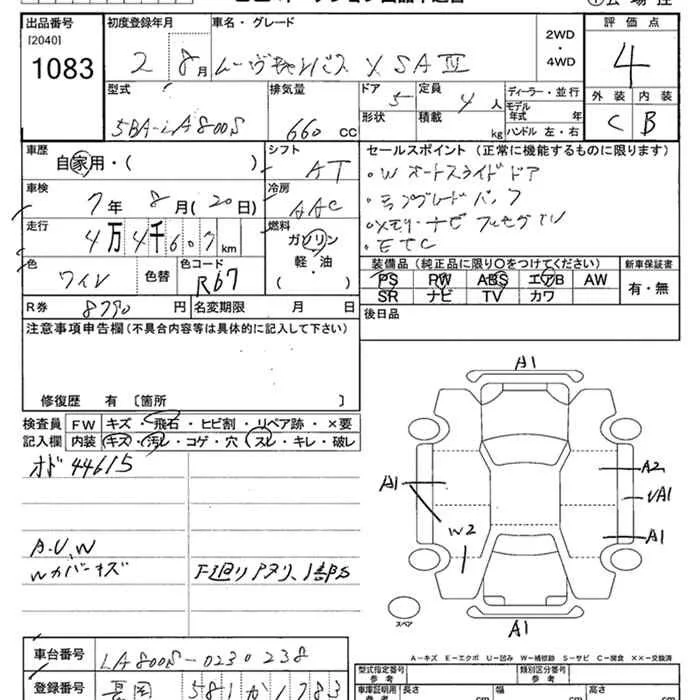 出品番号 初度登録年月 車名・グレード 評価点
[2040]
1083 2 8月 ムーヴキャンバス X SAⅢ 2WD・4WD 4
型式 排気量 ドア 5 定員 4人 ディーラー・並行 外装 内装
5BA-LA800S 660cc 形状 積載 kg モデル年式 年 ハンドル 左・右 C B
車歴 自家用・( ) シフト AT セールスポイント (正常に機能するものに限ります)
車検 7年 8月(20日) 冷房 AAC ・Wオートスライドドア
走行 4万4千607km 燃料 ガソリン
軽・油
( )
・ETC
色 ワイン 色替 色コード R67 装備品(純正品に限り○をつけてください) 新車保証書
PS PW ABS エアB AW 有・無
SR ナビ TV カワ
R券 8790円 名変期限 月 日 後日品
注意事項申告欄(不具合内容等は具体的に記入して下さい)
修復歴 有 [箇所 ]
検査員 FW キズ・飛石・ヒビ割・リペア跡・×要
記入欄 内装 キズ・汚レ・コゲ・穴・スレ・キレ・破レ
オド 44615
A.U.W
Wカバーキズ 下廻りアタリ、1部S
A1
A1 A2
UA1
W2 A1
スペア A1
A－キズ E－エクボ U－凹み W－補修跡 S－サビ C－腐食 ××－交換済
車台番号 LA800S-0230238
型式指定番号 参考 類別区分番号 参考
登録番号 長岡 581 か 1783
車庫証明用 参考 長さ cm 幅 cm 高さ cm